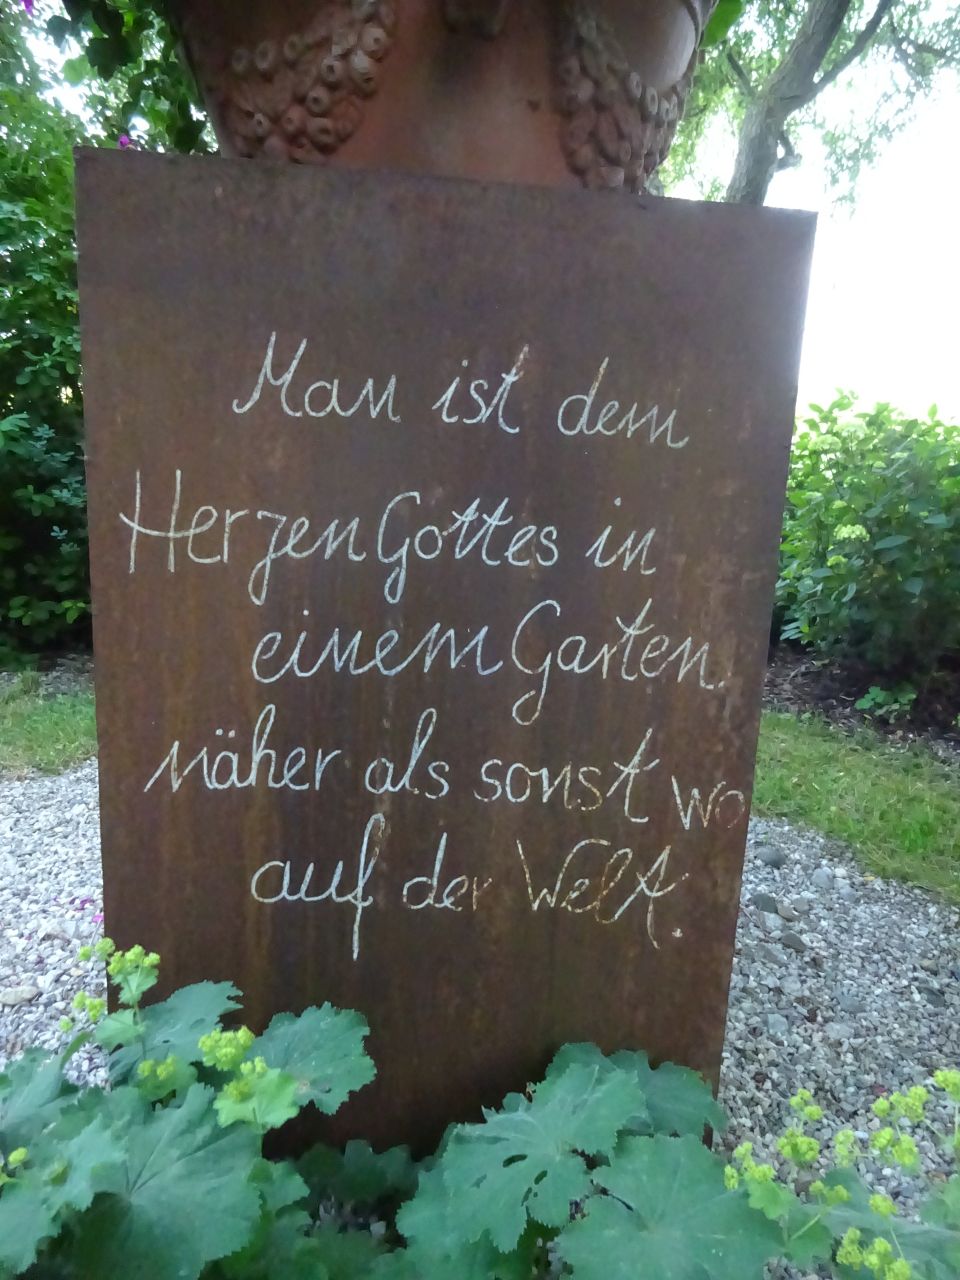 Man ist dem
Herzen Gottes in
einem Garten
näher als sonst wo
auf der Welt.